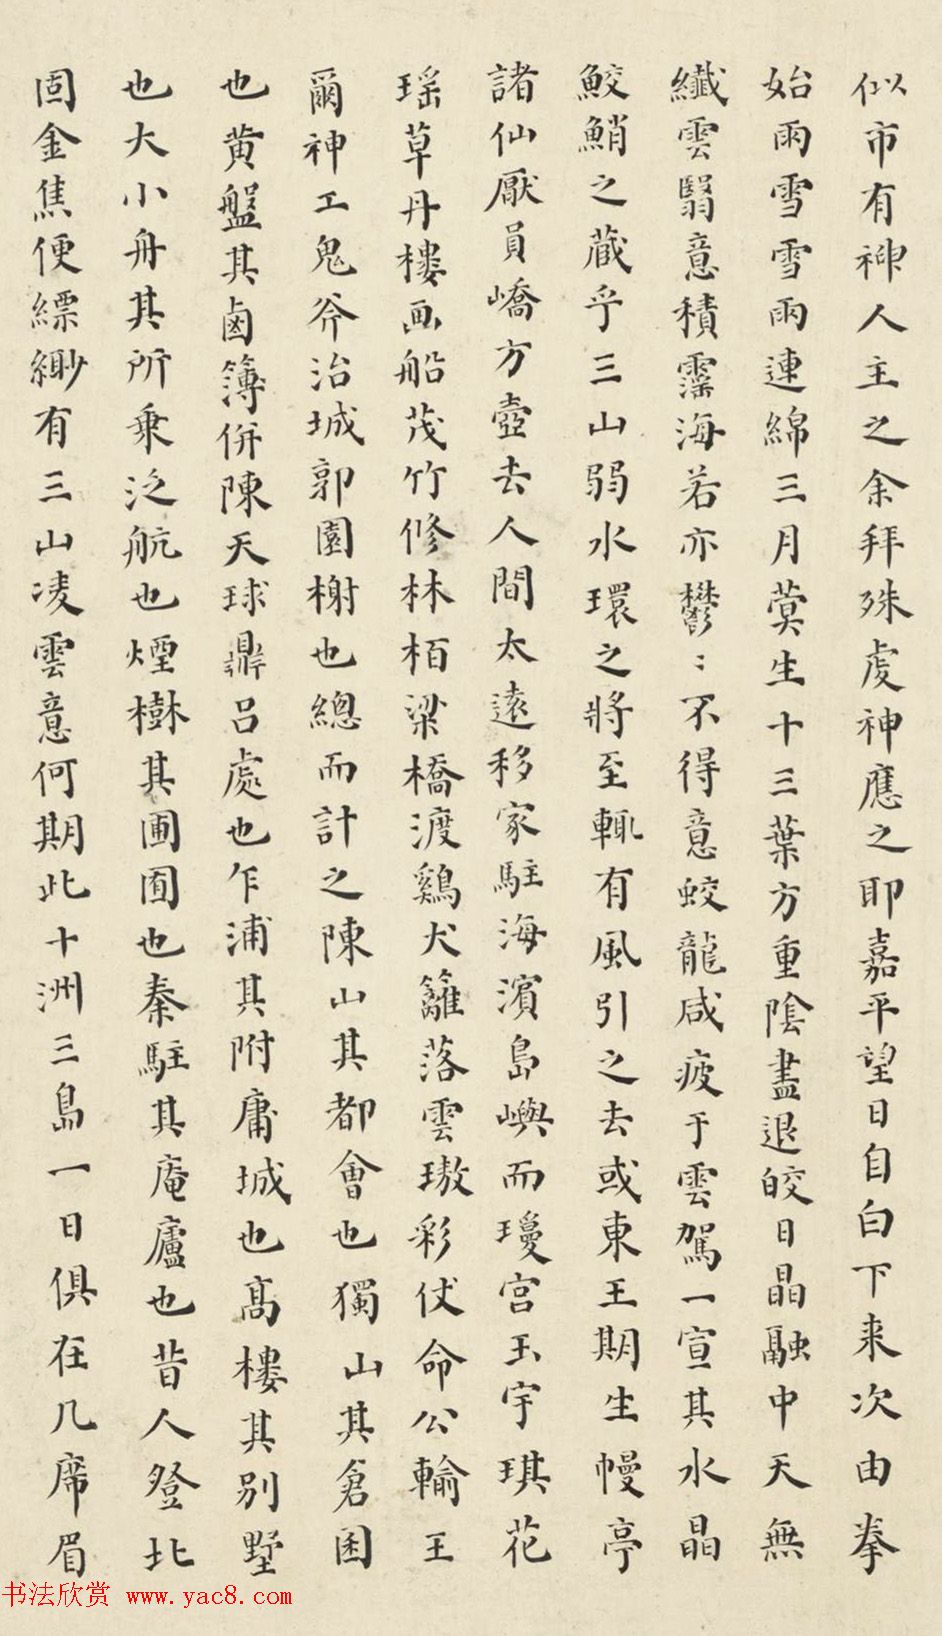 似市有神人主之余拜殊虔神應之耶嘉平望日自白下来次由拳
始雨雪雪雨連綿三月蓂生十三葉方重陰盡退皎日晶融中天無
纖雲翳意積霪海若亦鬱〻不得意蛟龍咸疲于雲駕一宣其水晶
鮫鮹之藏乎三山弱水環之將至輒有風引之去或東王期生幔亭
諸仙厭員嶠方壺去人間太遠移家駐海濱島嶼而瓊宮玉宇琪花
瑶草丹樓画船茂竹修林栢梁橋渡鷄犬籬落雲璈彩仗命公輸王
爾神工鬼斧治城郭園榭也總而計之陳山其都會也獨山其倉囷
也黄盤其鹵簿併陳天球鼎吕處也乍浦其附庸城也髙樓其别墅
也大小舟其所乗泛航也煙樹其圃囿也秦駐其庵廬也昔人登北
固金焦便縹緲有三山凌雲意何期此十洲三島一日俱在几席眉
书法欣赏 www.yac8.com